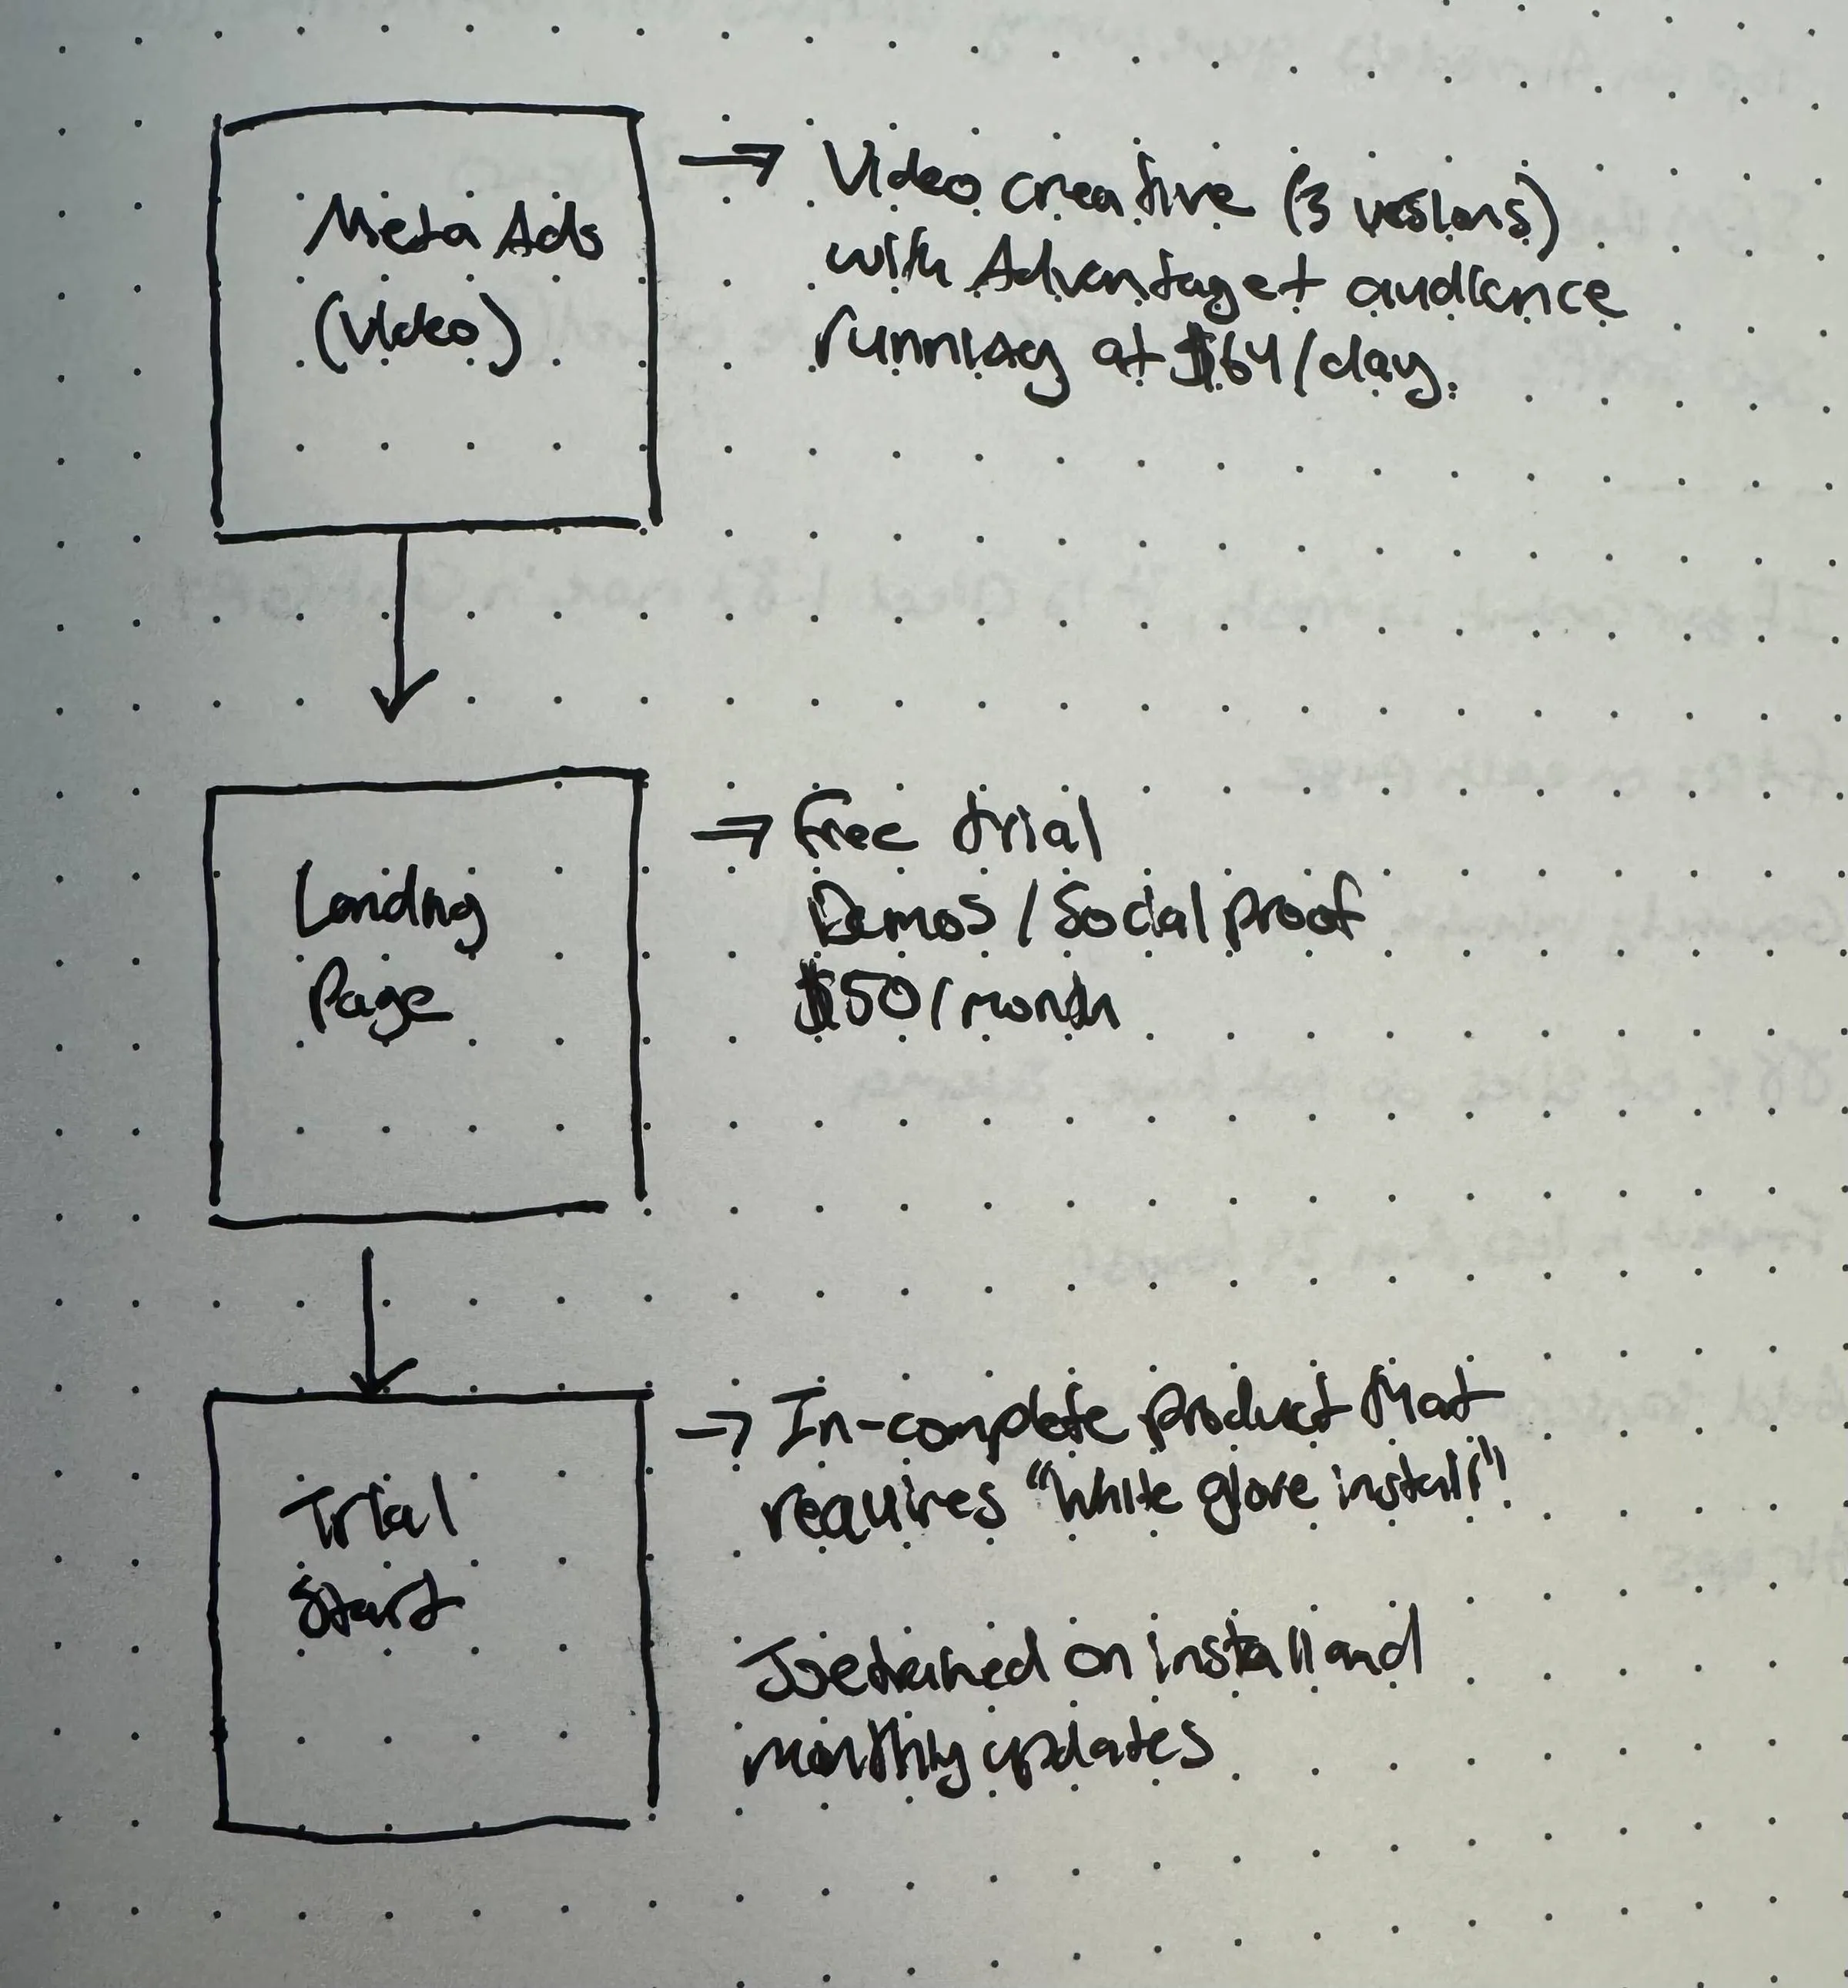 Meta Ads
(Video)
→ Video creative (3 vesions)
with Advantage+ audience
running at $64/day.
Landing
Page
→ Free trial
Demos / Social proof
$50/month
Trial
Start
→ In-complete product that
requires "White glove install"!
Joe trained on install and
monthly updates